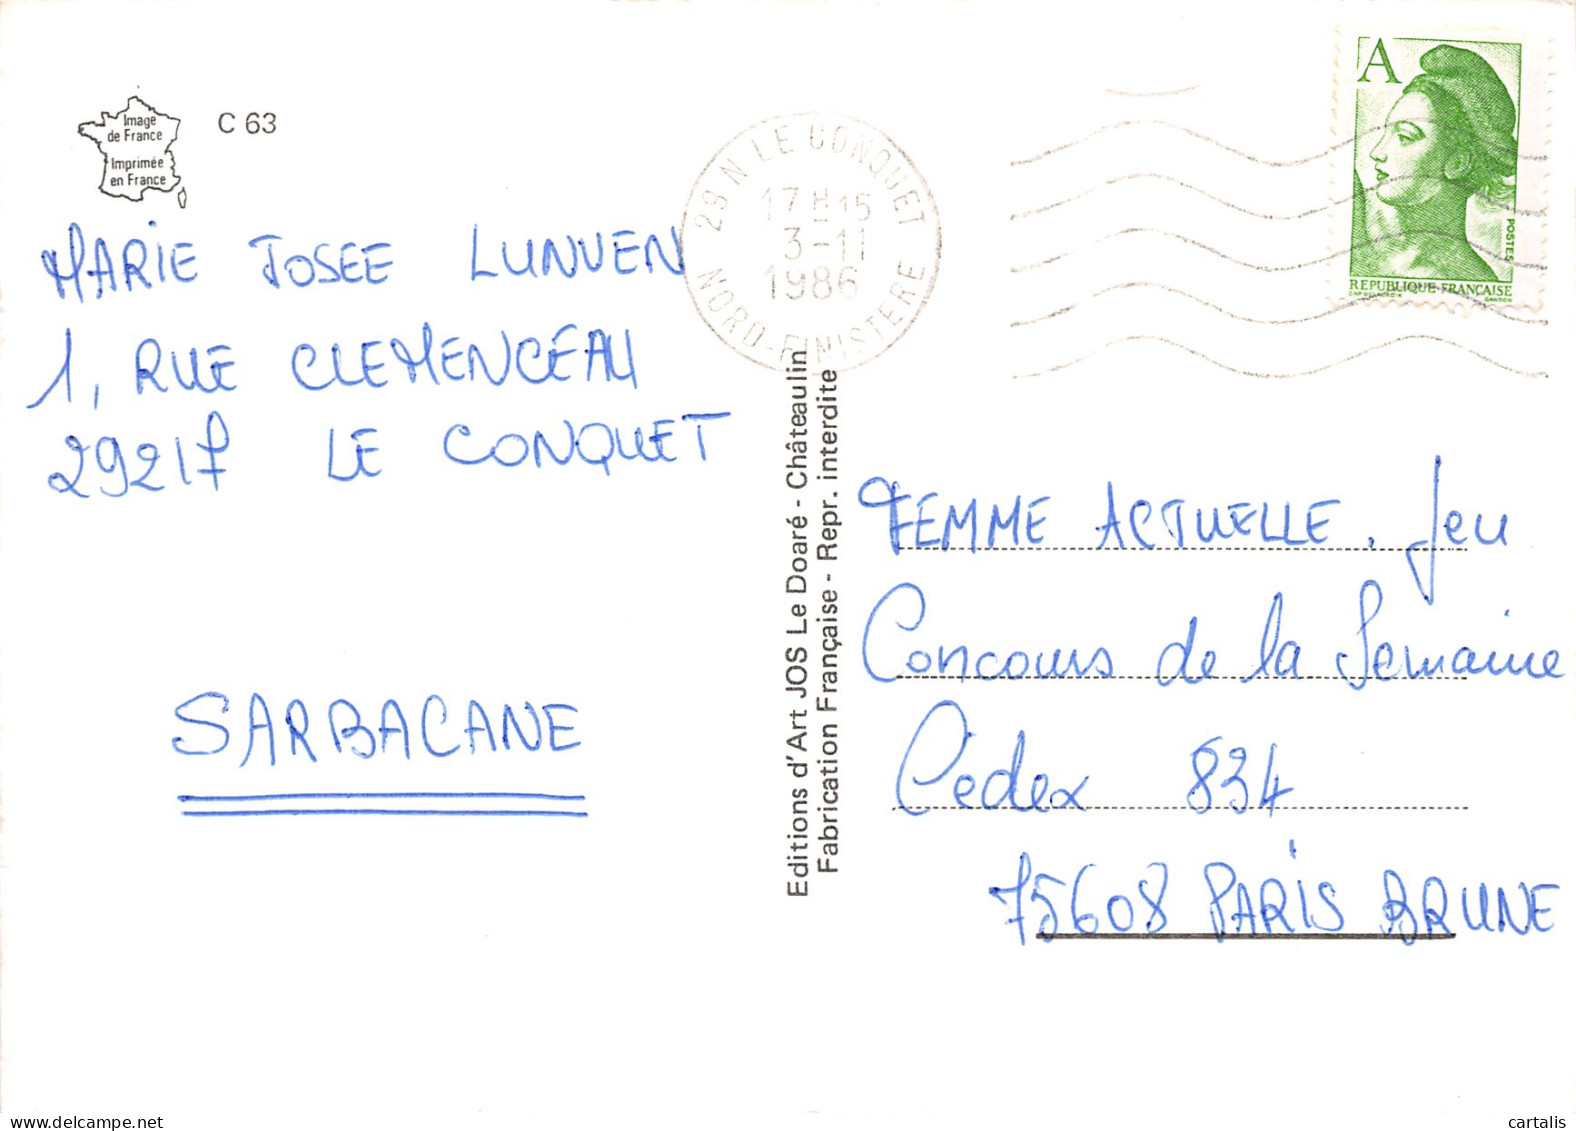 Image
de France
Imprimée
en France
C 63
MARIE JOSEE LUNVEN
1, RUE CLEMENCEAU
29217 LE CONQUET
SARBACANE
29 N LE CONQUET
17 H 15
3-11
1986
NORD-FINISTERE
A
POSTES
REPUBLIQUE FRANÇAISE
GANDON
Editions d'Art JOS Le Doaré - Châteaulin
Fabrication Française - Repr. interdite
FEMME ACTUELLE. Jeu
Concours de la Semaine
Cedex 834
75608 PARIS BRUNE
www.delcampe.net
cartalis